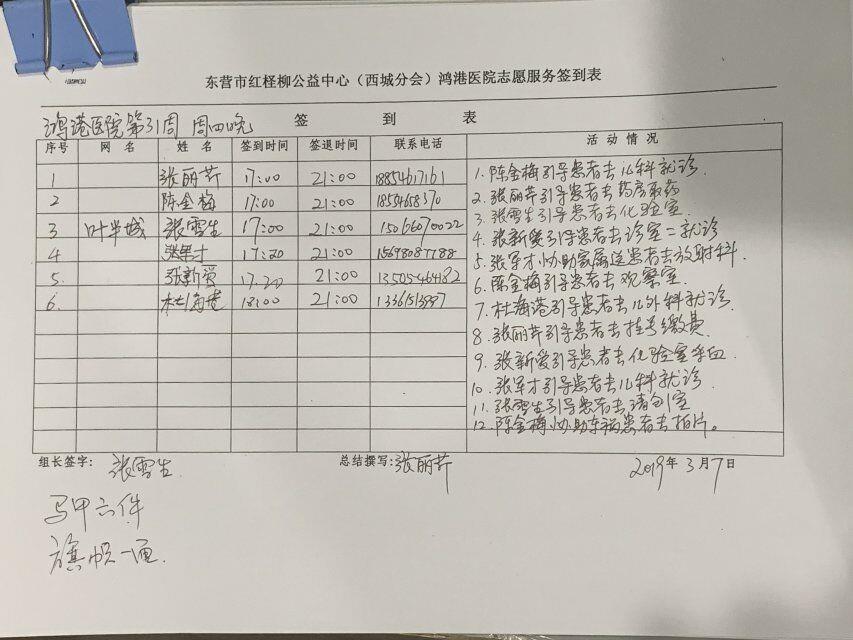 东营市红柽柳公益中心（西城分会）鸿港医院志愿服务签到表
鸿港医院第31周 周四晚 签 到 表
序号 网 名 姓 名 签到时间 签退时间 联系电话 活 动 情 况
1 张丽芹 17:00 21:00 18854617161
2 陈金梅 17:00 21:00 1854668370
3 叶半城 张雪生 17:00 21:00 15066070022
4 张军才 17:20 21:00 15698087788
5. 张新爱 17.20 21:00 13505464182
6. 杜海港 18:00 21:00 13361513887
1. 陈金梅引导患者去儿科就诊.
2. 张丽芹引导患者去药房取药
3. 张雪生引导患者去化验室.
4. 张新爱引导患者去诊室二就诊
5. 张军才协助家属送患者去放射科.
6. 陈金梅引导患者去观察室.
7. 杜海港引导患者去儿外科就诊.
8. 张丽芹引导患者去挂号缴费.
9. 张新爱引导患者去化验室采血.
10. 张军才引导患者去儿科就诊.
11. 张雪生引导患者去清创室
12. 陈金梅协助车祸患者去拍片。
组长签字: 张雪生. 总结撰写: 张丽芹 2019年3月7日
马甲六件
旗帜一面.